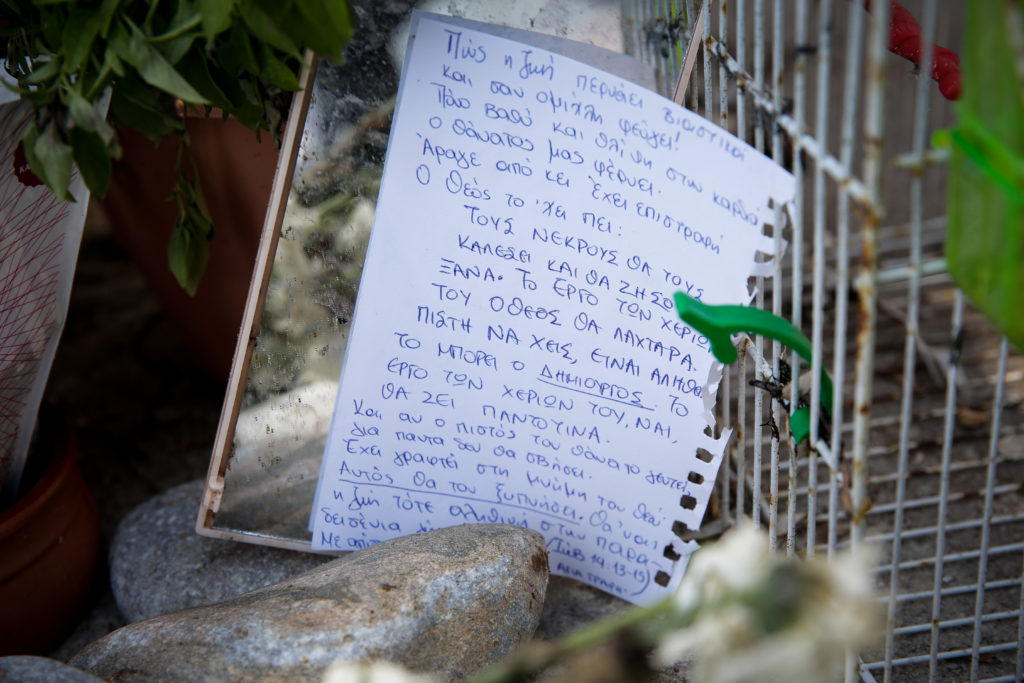 Πώς η ζωή περνάει βιαστικα
και σαν ομίχλη φεύγει!
Πόσο βαθύ και θλίψη στην καρδιά
ο θάνατος μας φέρνει.
Άραγε από κει έχει επιστραφή
ο Θεός το 'χει πει:
ΤΟΥΣ ΝΕΚΡΟΥΣ ΘΑ ΤΟΥΣ
ΚΑΛΕΣΕΙ ΚΑΙ ΘΑ ΖΗΣΟ
ΞΑΝΑ. ΤΟ ΕΡΓΟ ΤΩΝ ΧΕΡΙΩ
ΤΟΥ Ο ΘΕΟΣ ΘΑ ΛΑΧΤΑΡΑ.
ΠΙΣΤΗ ΝΑ ΧΕΙΣ, ΕΙΝΑΙ ΑΛΗΘΕ
ΤΟ ΜΠΟΡΕΙ Ο ΔΗΜΙΟΥΡΓΟΣ. ΤΟ
ΕΡΓΟ ΤΩΝ ΧΕΡΙΩΝ ΤΟΥ, ΝΑΙ,
ΘΑ ΖΕΙ ΠΑΝΤΟΥΙΝΑ.
Και αν ο πιστός τον θάνατο γευτεί,
για παντα δεν θα σβήσει.
Έχει γραφτεί στη μνήμη του Θεού
Αυτός θα τον ξυπνήσει. Θα 'ναι
η ζωή τότε αληθινή στην παρα-
δεισένια
Με (Ιώβ 14:13-15)
ΑΓΙΑ ΓΡΑΦΗ.